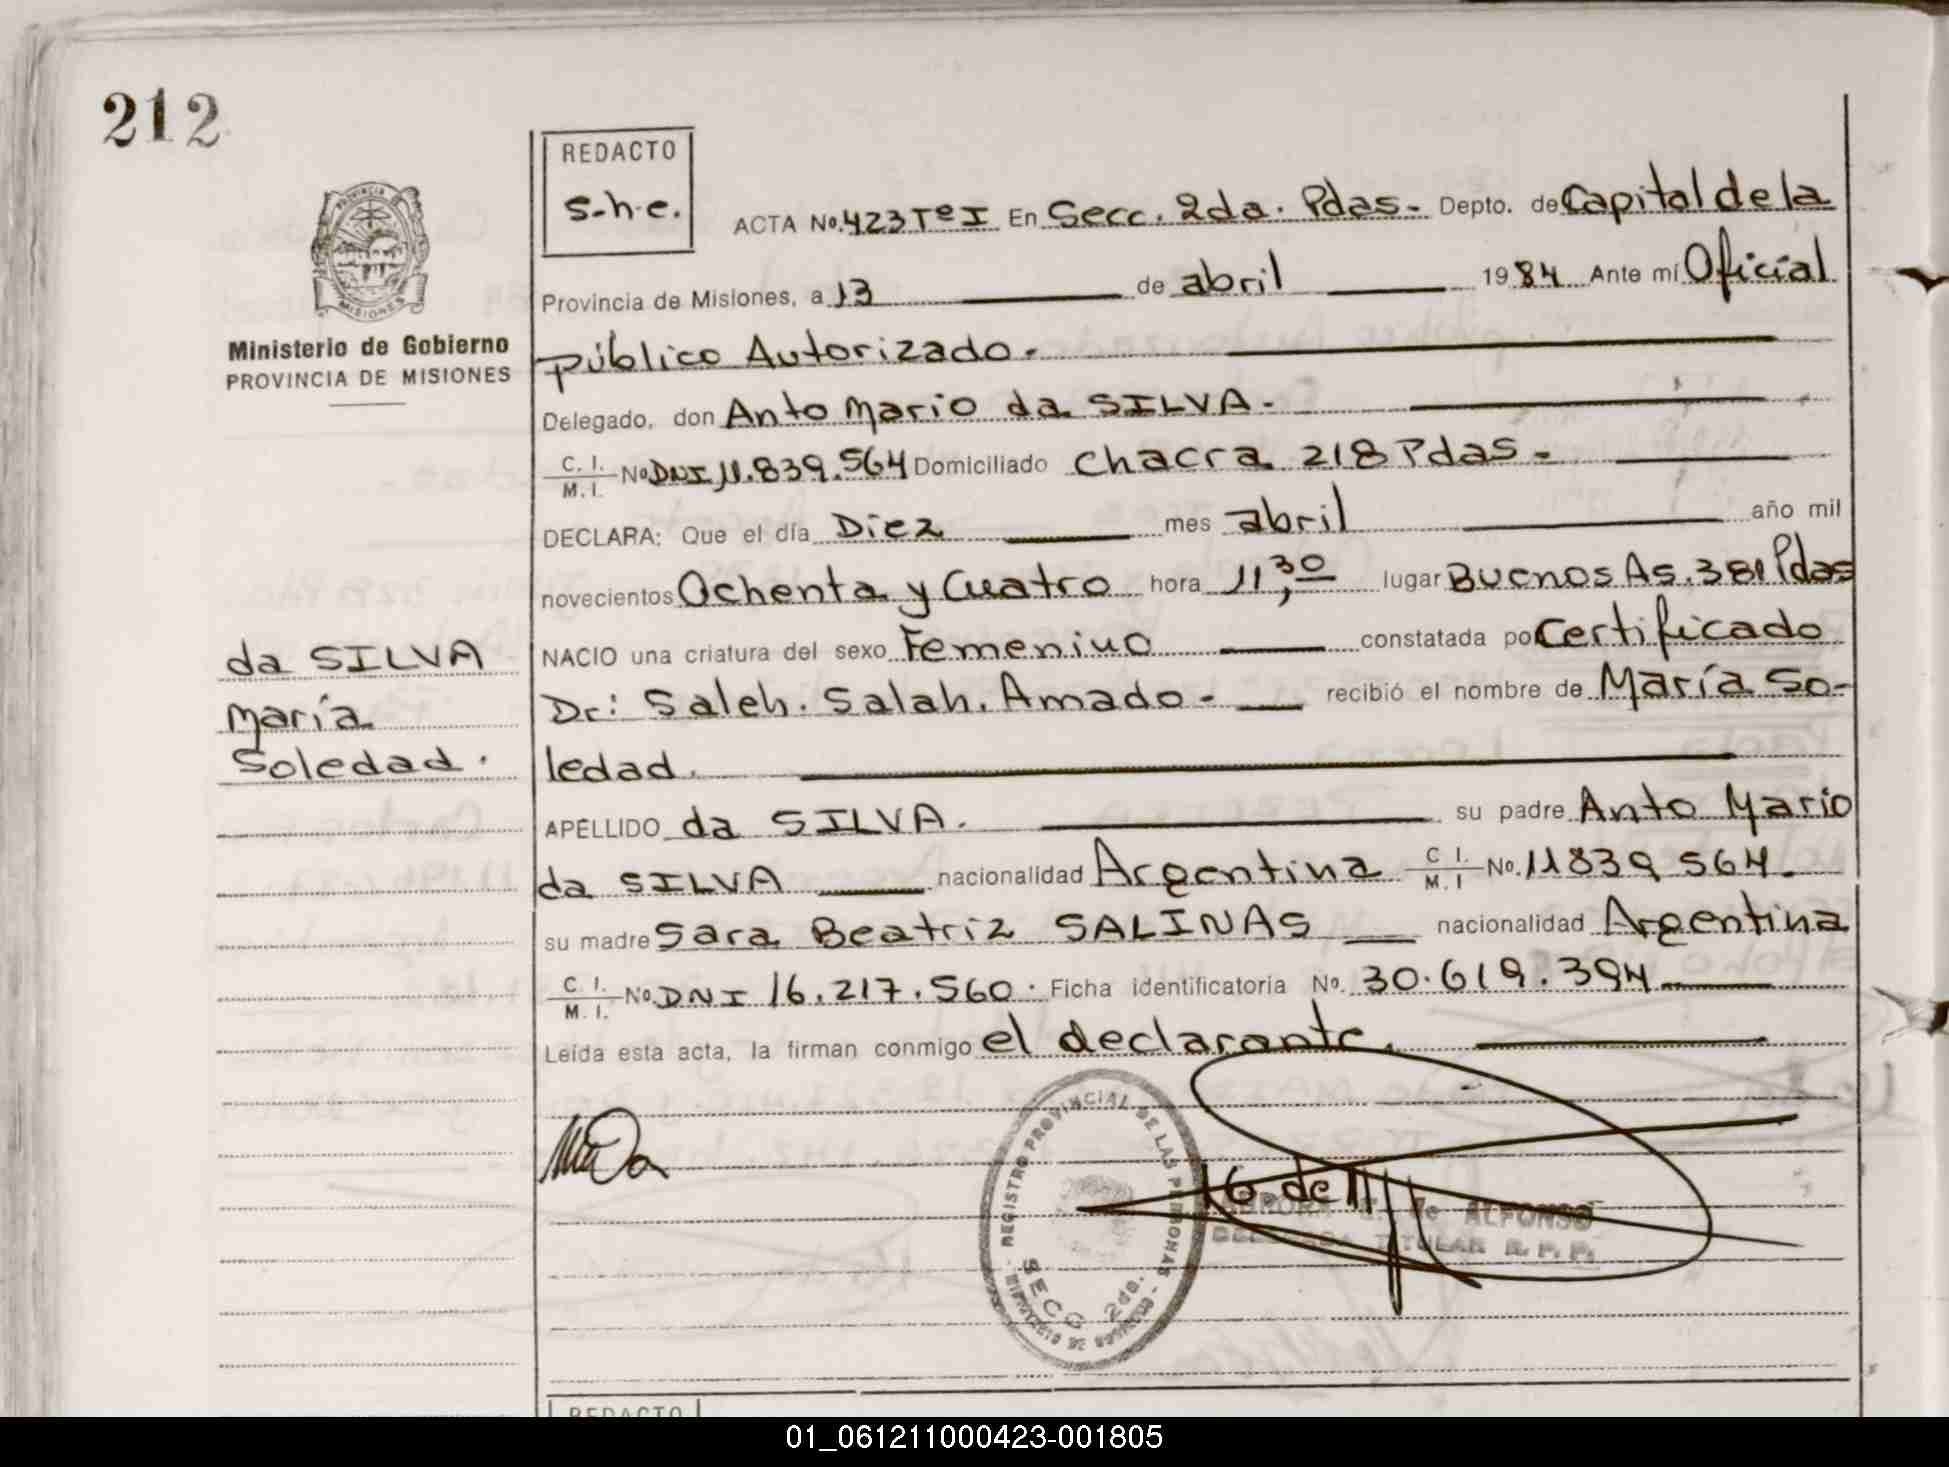 212
PROVINCIA DE
MISIONES
Ministerio de Gobierno
PROVINCIA DE MISIONES
REDACTO
S-h-e.
ACTA No. 423 Tº I En Secc. 2da. Pdas- Depto. de Capital de la
Provincia de Misiones, a 13 de abril 1984 Ante mí Oficial
público Autorizado.
Delegado, don Anto Mario da SILVA-
C. I.
M. I. No DNI 11.839.564 Domiciliado Chacra 218 Pdas-
DECLARA: Que el día Diez mes abril año mil
novecientos Ochenta y Cuatro hora 11,30 lugar Buenos As. 381 Pdas
NACIO una criatura del sexo Femenino constatada po Certificado
Dr: Saleh. Salah. Amado- recibió el nombre de María So-
ledad.
APELLIDO da SILVA. su padre Anto Mario
da SILVA nacionalidad Argentina C I.
M. I No. 11839564.
su madre Sara Beatriz SALINAS nacionalidad Argentina
C. I.
M. I. No. DNI 16.217.560. Ficha identificatoria No. 30.619.394
Leída esta acta, la firman conmigo el declarante.
da SILVA
María
Soledad.
REGISTRO PROVINCIAL DE LAS PERSONAS
SECC 2da.
16 de
de ALFONSO
TITULAR R. P. P.
REDACTO
01_061211000423-001805